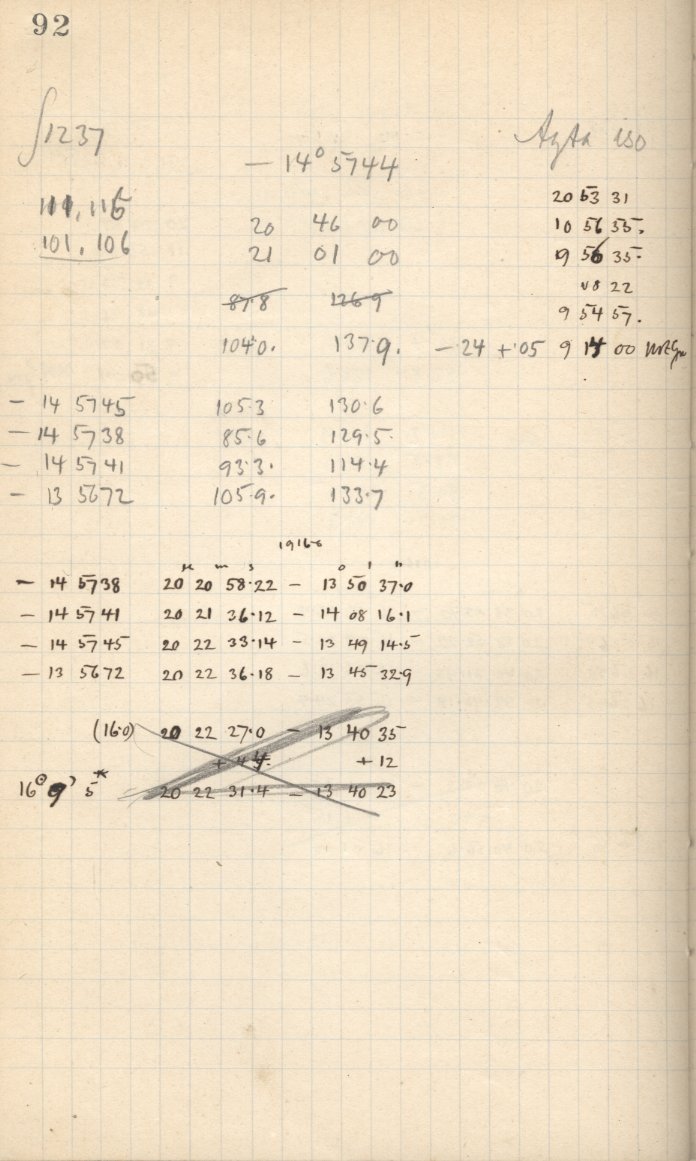 92
∫1237 Agfa iso
— 14° 5744
111, 115 20 53 31
20 46 00 10 56 35.
101, 106 21 01 00 9 56 35.
87.8 126.9 08 22
9 54 57.
104.0. 137.9. — 24 + .05 9 14 00
— 14 5745 105.3 130.6
— 14 5738 85.6 129.5
— 14 5741 93.3. 114.4
— 13 5672 105.9. 133.7
1916.0
H m s ° ' "
— 14 5738 20 20 58.22 — 13 50 37.0
— 14 5741 20 21 36.12 — 14 08 16.1
— 14 5745 20 22 33.14 — 13 49 14.5
— 13 5672 20 22 36.18 — 13 45 32.9
(16.0) 20 22 27.0 — 13 40 35
+ 4.4 + 12
20 22 31.4 — 13 40 23